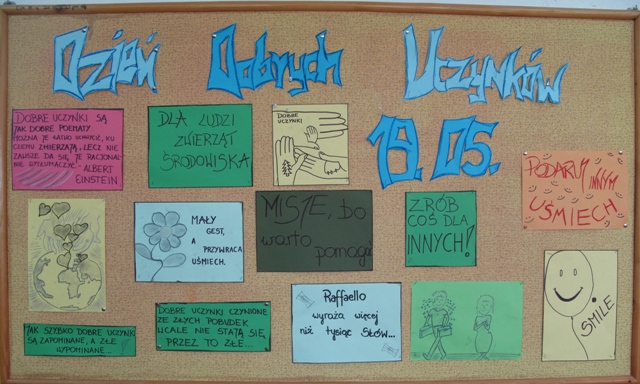 Dzień Dobrych Uczynków
19.05.
DOBRE UCZYNKI SĄ
JAK DOBRE POEMATY
MOŻNA JE ŁATWO DOSTRZEC, KU
CZEMU ZMIERZAJĄ, LECZ NIE
ZAWSZE DA SIĘ JE RACJONAL-
NIE WYTŁUMACZYĆ.
ALBERT
EINSTEIN
DLA LUDZI
ZWIERZĄT
ŚRODOWISKA
DOBRE
UCZYNKI
PODARUJ INNYM
UŚMIECH
MAŁY
GEST,
A
PRZYWRACA
UŚMIECH.
MISJE, bo
warto pomagać
ZRÓB
COŚ DLA
INNYCH!
JAK SZYBKO DOBRE UCZYNKI
SĄ ZAPOMINANE, A ZŁE
WYPOMINANE...
DOBRE UCZYNKI CZYNIONE
ZE ZŁYCH POBUDEK
WCALE NIE STAJĄ SIĘ
PRZEZ TO ZŁE...
Raffaello
wyraża więcej
niż tysiąc słów...
SMILE